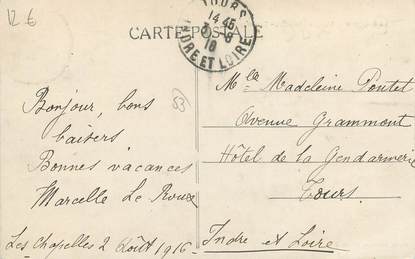 12 €
TOURS
14 45
3-8
16
INDRE ET LOIRE
CARTE POSTALE
53
Bonjour, bons
baisers.
Bonnes vacances
Marcelle Le Roux
Les Chapelles 2 Août 1916-
Mlle Madeleine Poutet
Avenue Grammont
Hôtel de la Gendarmerie
Tours.
Indre et Loire